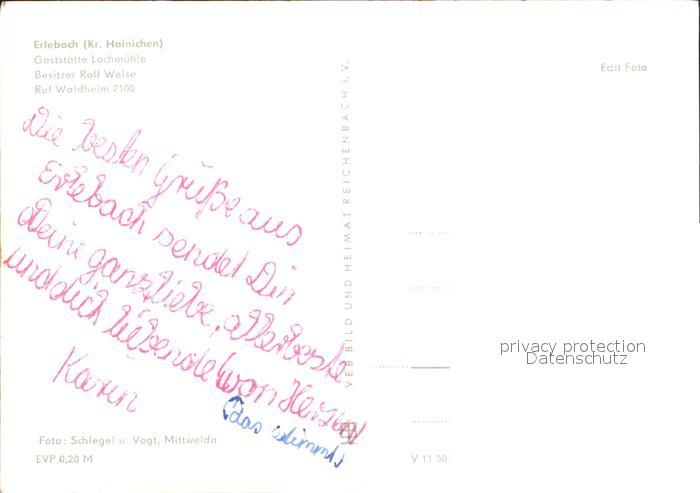 Erlebach (Kr. Hainichen)
Gaststätte Lochmühle
Besitzer Rolf Weise
Ruf Waldheim 2100
Echt Foto
Die besten Grüße aus
Erlebach sendet Dir
Deine ganz liebe, allerbeste
und dich liebende (von Herzen)
Karin
(das stimmt)
VEB BILD UND HEIMAT REICHENBACH i. V.
privacy protection
Datenschutz
Foto: Schlegel u. Vogt, Mittweida
EVP 0,20 M
V 11 50